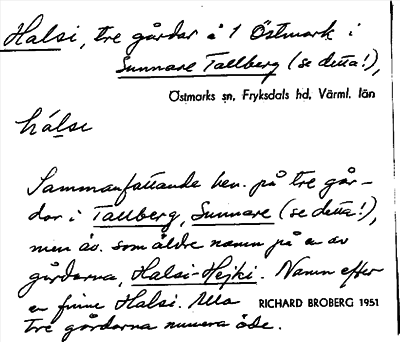 Halsi, tre gårdar å 1 Östmark i
Sunnare Tallberg (se detta!),
Östmarks sn, Fryksdals hd, Värml. län
hálsi
Sammanfattande ben. på tre går-
dar i Tallberg, Sunnare (se detta!),
men äv. som äldre namn på en av
gårdarna, Halsi-Hejki. Namn efter
en finne Halsi. Alla
RICHARD BROBERG 1951
tre gårdarna numera öde.